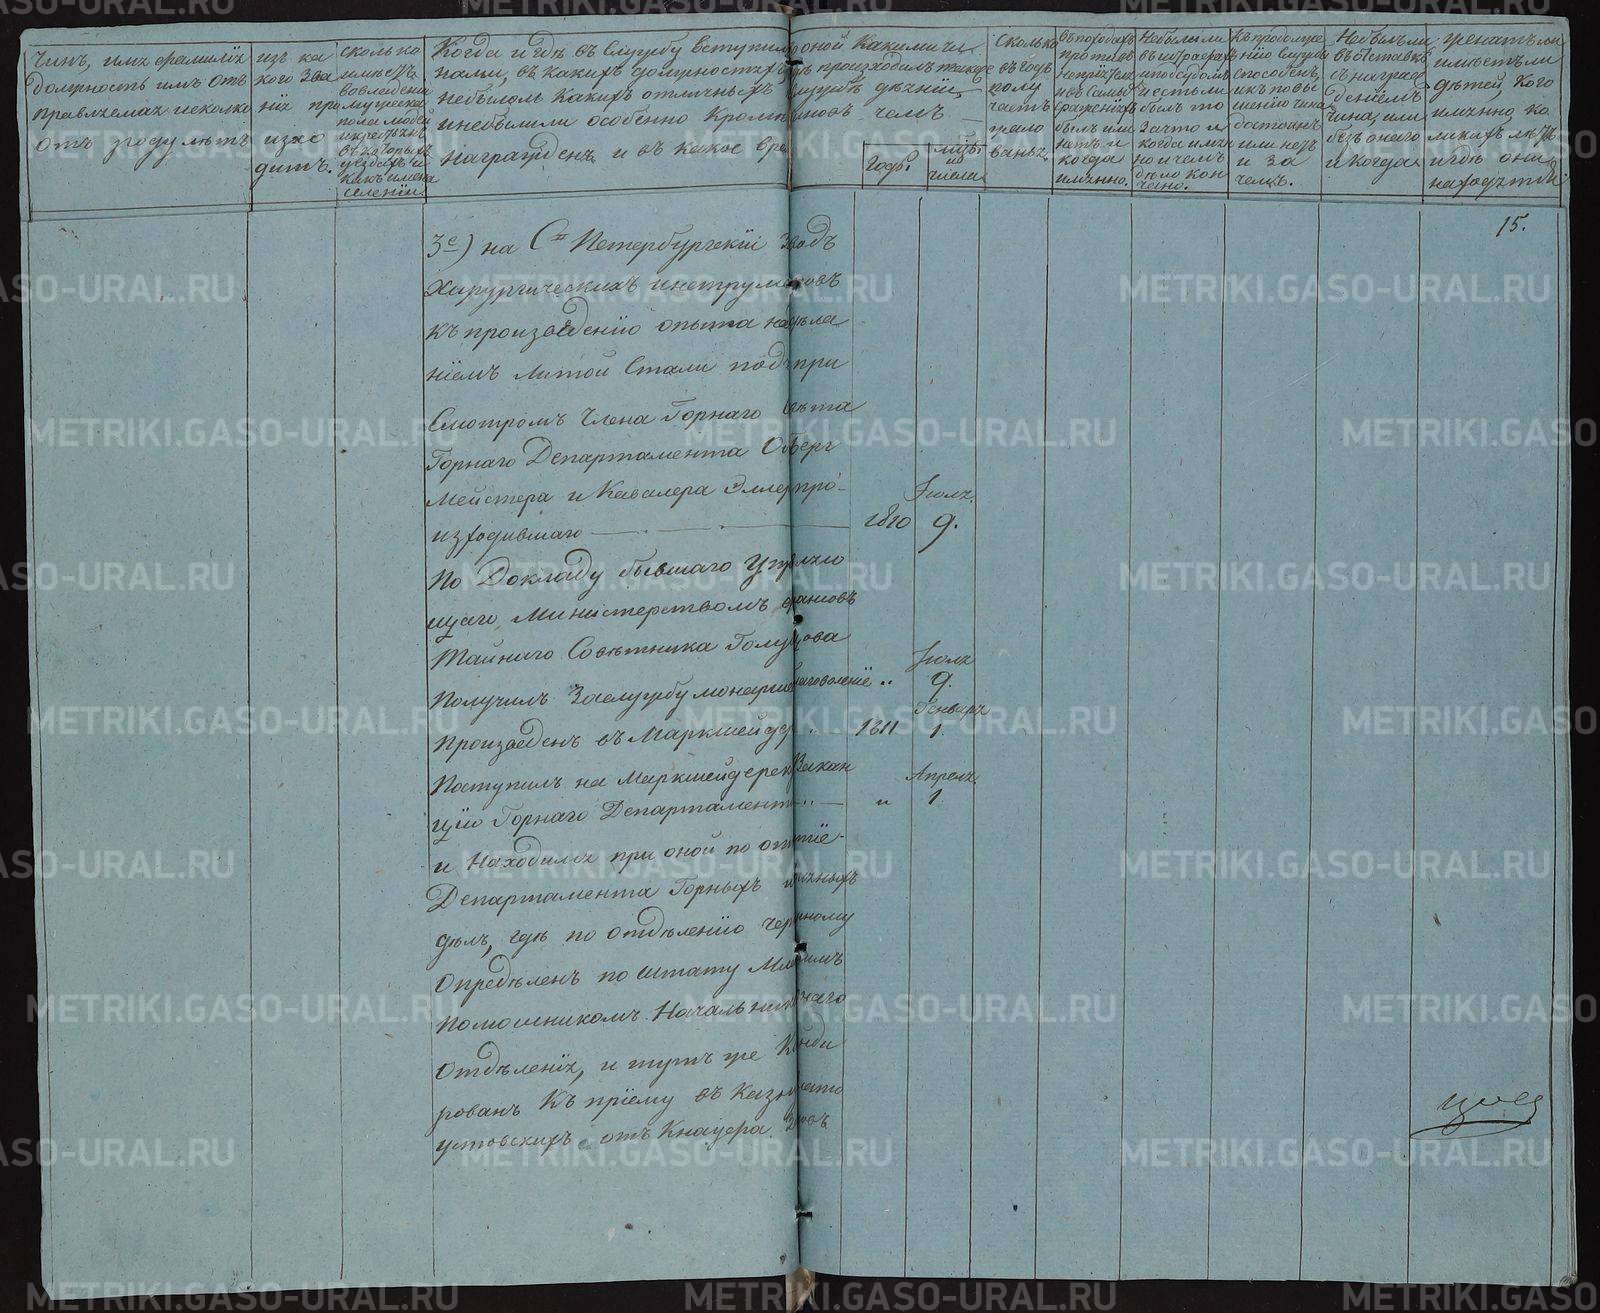 Чинъ, имя фамилія
должность имъ от
правляемая исколко
отъ роду лѣтъ
изъ ка
кого зва
нія про
изхо
дитъ.
сколько
имѣетъ
во владѣніи
мужеска
пола людей
и крестьянъ
въ которыхъ
уѣздахъ и
какъ имена
селеній
Когда и гдѣ въ службу вступилъ оной какими чи
нами, въ какихъ должностяхъ произходилъ также
небылоль какихъ отличныхъ дѣяній
и небылъли особенно кромѣ чиновъ чемъ
награжденъ и въ какое вре
Годы.
мѣсяцы
и
числа
сколько
въ году
кому
часть
вано.
въ походахъ
противъ
непріятеля
и въ самыхъ
сраженіяхъ
былъ или
нѣтъ и
когда
имянно.
Небылъли
въ штрафахъ
и подсудомъ
и естьли
былъ то
за что и
когда имян
но и чемъ
дѣло кон
чено.
Къ продолже
нію службы
способенъ,
и къ повы
шенію чина
достоинъ
или нѣтъ
и за
чемъ.
Небылъли
въ отставкѣ
съ награж
деніемъ
чина или
безъ онаго
и когда
Женатъ ли
имѣетъ ли
дѣтей, кого
имянно ка
кихъ лѣтъ
и гдѣ они
находятся
15.
3е) на Ст. Петербургскій Заводъ
Хирургическихъ инструментовъ
къ произведенію опыта надъ дѣла
ніемъ литой стали подъ при
смотромъ Члена Горнаго Совѣта
Горнаго Департамента Обберг
Мейстера и Кавалера Эллерс про-
изходившаго
1810
Іюля
9.
По Докладу бывшаго Управляю
щаго Министерствомъ финансовъ
Тайнаго Совѣтника Голубцова
Получилъ за службу монаршее благоволеніе ..
Іюля
9.
Произведенъ въ Маркшейдеры ... 1811
Генваря
1.
Поступилъ на Маркшейдерскую Вакан
цію Горнаго Департамента .. — и
Апреля
1.
и Находился при оной по открытіе
Департамента Горныхъ и соляныхъ
дѣлъ, гдѣ по отдѣленію
Опредѣленъ по штату Младшимъ
Помошникомъ Начальника
Отдѣленія, и тутъ же Команди
рованъ Къ пріему въ Казну Злато
устовскихъ отъ Кнауфа Заводовъ